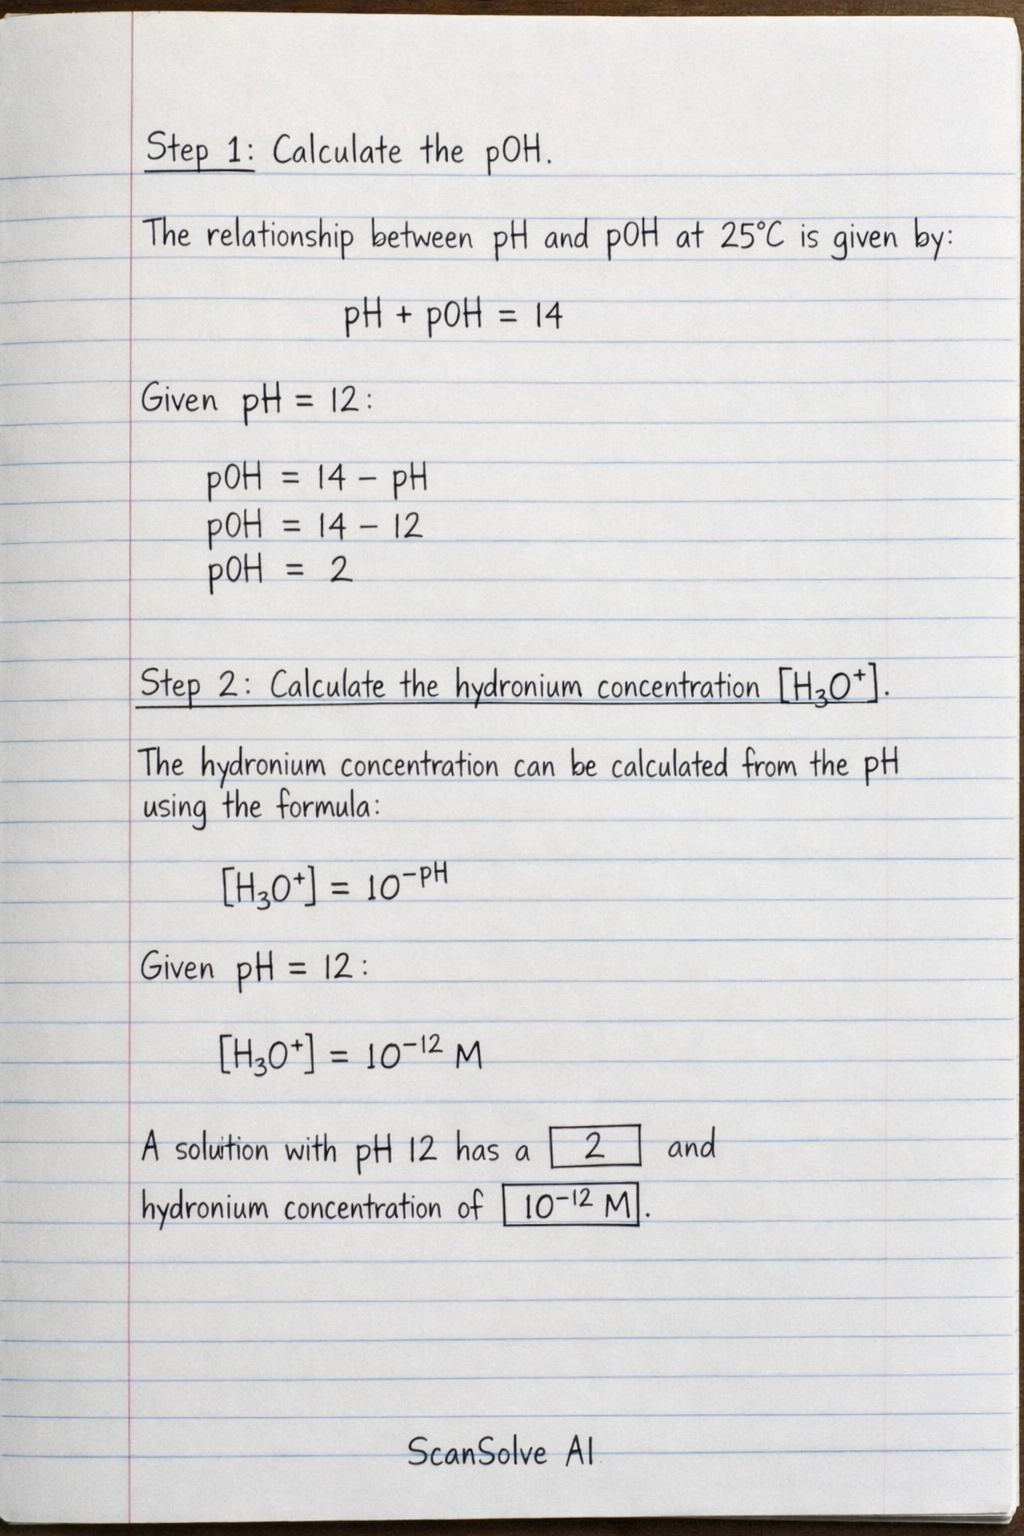 Step 1: Calculate the pOH.
The relationship between pH and pOH at 25°C is given by:
pH + pOH = 14
Given pH = 12:
pOH = 14 − pH
pOH = 14 − 12
pOH = 2
Step 2: Calculate the hydronium concentration [H₃O⁺].
The hydronium concentration can be calculated from the pH
using the formula:
[H₃O⁺] = 10⁻ᵖᴴ
Given pH = 12:
[H₃O⁺] = 10⁻¹² M
A solution with pH 12 has a 2 and
hydronium concentration of 10⁻¹² M.
ScanSolve AI